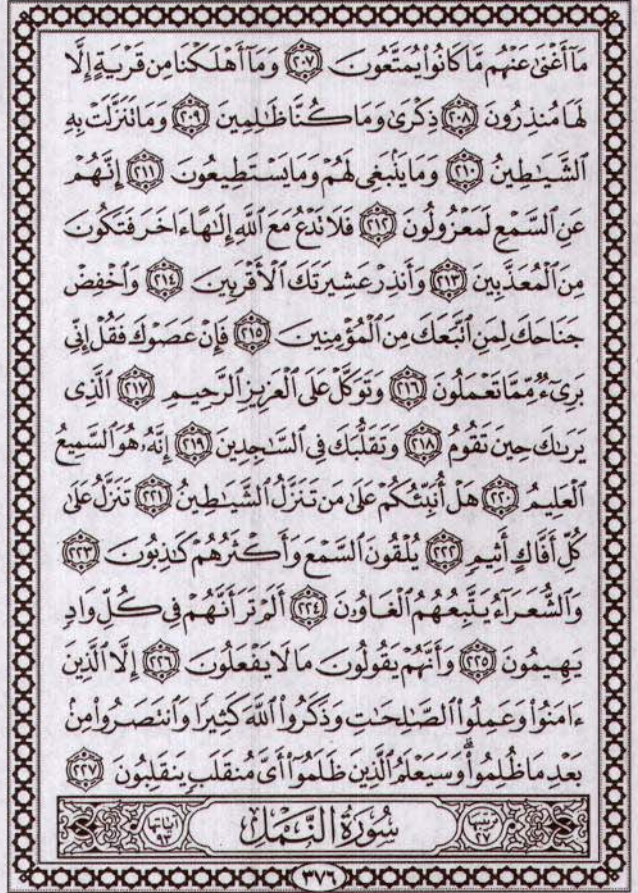 مَآ أَغْنَىٰ عَنْهُم مَّا كَانُوا۟ يُمَتَّعُونَ ٢٠٧ وَمَآ أَهْلَكْنَا مِن قَرْيَةٍ إِلَّا
لَهَا مُنذِرُونَ ٢٠٨ ذِكْرَىٰ وَمَا كُنَّا ظَٰلِمِينَ ٢٠٩ وَمَا تَنَزَّلَتْ بِهِ
ٱلشَّيَٰطِينُ ٢١٠ وَمَا يَنۢبَغِى لَهُمْ وَمَا يَسْتَطِيعُونَ ٢١١ إِنَّهُمْ
عَنِ ٱلسَّمْعِ لَمَعْزُولُونَ ٢١٢ فَلَا تَدْعُ مَعَ ٱللَّهِ إِلَٰهًا ءَاخَرَ فَتَكُونَ
مِنَ ٱلْمُعَذَّبِينَ ٢١٣ وَأَنذِرْ عَشِيرَتَكَ ٱلْأَقْرَبِينَ ٢١٤ وَٱخْفِضْ
جَنَاحَكَ لِمَنِ ٱتَّبَعَكَ مِنَ ٱلْمُؤْمِنِينَ ٢١٥ فَإِنْ عَصَوْكَ فَقُلْ إِنِّى
بَرِىٓءٌ مِّمَّا تَعْمَلُونَ ٢١٦ وَتَوَكَّلْ عَلَى ٱلْعَزِيزِ ٱلرَّحِيمِ ٢١٧ ٱلَّذِى
يَرَىٰكَ حِينَ تَقُومُ ٢١٨ وَتَقَلُّبَكَ فِى ٱلسَّٰجِدِينَ ٢١٩ إِنَّهُۥ هُوَ ٱلسَّمِيعُ
ٱلْعَلِيمُ ٢٢٠ هَلْ أُنَبِّئُكُمْ عَلَىٰ مَن تَنَزَّلُ ٱلشَّيَٰطِينُ ٢٢١ تَنَزَّلُ عَلَىٰ
كُلِّ أَفَّاكٍ أَثِيمٍ ٢٢٢ يُلْقُونَ ٱلسَّمْعَ وَأَكْثَرُهُمْ كَٰذِبُونَ ٢٢٣
وَٱلشُّعَرَآءُ يَتَّبِعُهُمُ ٱلْغَاوُۥنَ ٢٢٤ أَلَمْ تَرَ أَنَّهُمْ فِى كُلِّ وَادٍ
يَهِيمُونَ ٢٢٥ وَأَنَّهُمْ يَقُولُونَ مَا لَا يَفْعَلُونَ ٢٢٦ إِلَّا ٱلَّذِينَ
ءَامَنُوا۟ وَعَمِلُوا۟ ٱلصَّٰلِحَٰتِ وَذَكَرُوا۟ ٱللَّهَ كَثِيرًا وَٱنتَصَرُوا۟ مِنۢ
بَعْدِ مَا ظُلِمُوا۟ ۗ وَسَيَعْلَمُ ٱلَّذِينَ ظَلَمُوٓا۟ أَىَّ مُنقَلَبٍ يَنقَلِبُونَ ٢٢٧
ترتيبها ٢٧ سُورَةُ ٱلنَّمْلِ آياتها ٩٣
٣٧٦